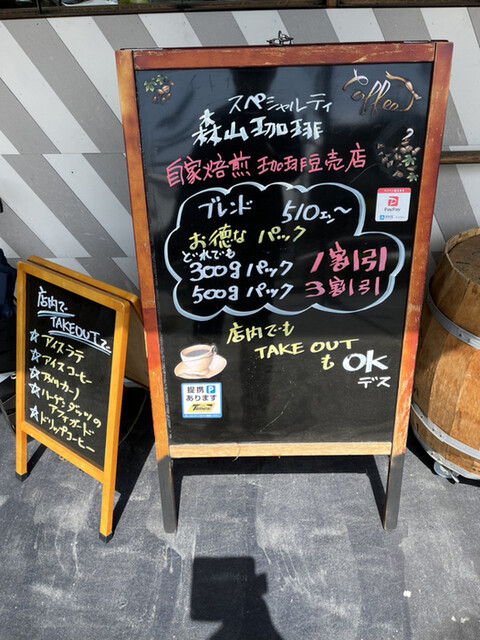 Coffee
スペシャルティ
森山珈琲
自家焙煎 珈琲豆売店
ブレンド 510エン〜
お徳な パック
どれでも
300g パック 1割引
500g パック 3割引
店内でも
TAKE OUT
も OK
デス
PayPay
提携 P
あります
店内で
TAKEOUTで
☆アイスラテ
☆アイスコーヒー
☆アメリカーノ
☆ハーゲンダッツの
アフォガード
☆ドリップコーヒー